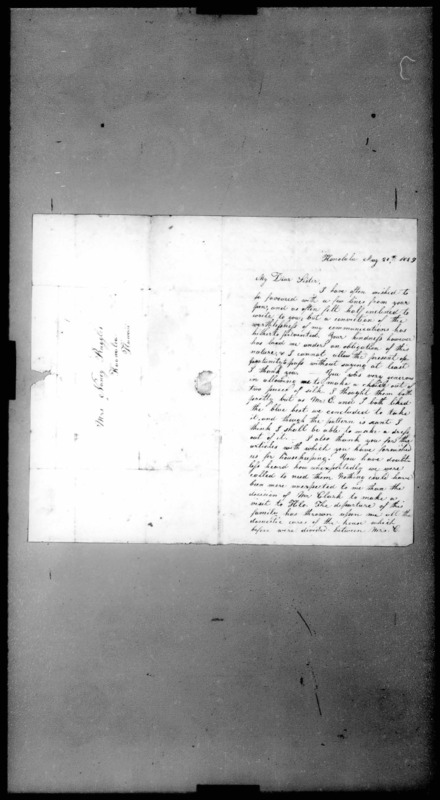 Mrs Nancy Ruggles
Waimea
Hawaii
Honolulu Aug 20th 1829
My Dear Sister,
I have often wished to
be favoured with a few lines from your
pen, and as often felt half inclined to
write to you, but a conviction of the
worthlessness of my communications has
hitherto prevented. Your kindness however
has laid me under an obligation of this
nature, & I cannot allow the present op-
portunity to pass without saying at least
I thank you. You were very generous
in allowing me to make a choice out of
two pieces of silk I thought them both
pretty, but as Mr C. and I both liked
the blue best we concluded to take
it, and though the pattern is scant I
think I shall be able to make a dress
out of it. I also thank you for the
articles with which you have furnished
us for housekeeping. You have doubt-
less heard how unexpectedly we were
called to need them. Nothing could have
been more unexpected to me than the
decision of Mr Clark to make a
visit to Hilo. The departure of this
family has thrown upon me all the
domestic cares of the house which
before were divided between Mrs C.